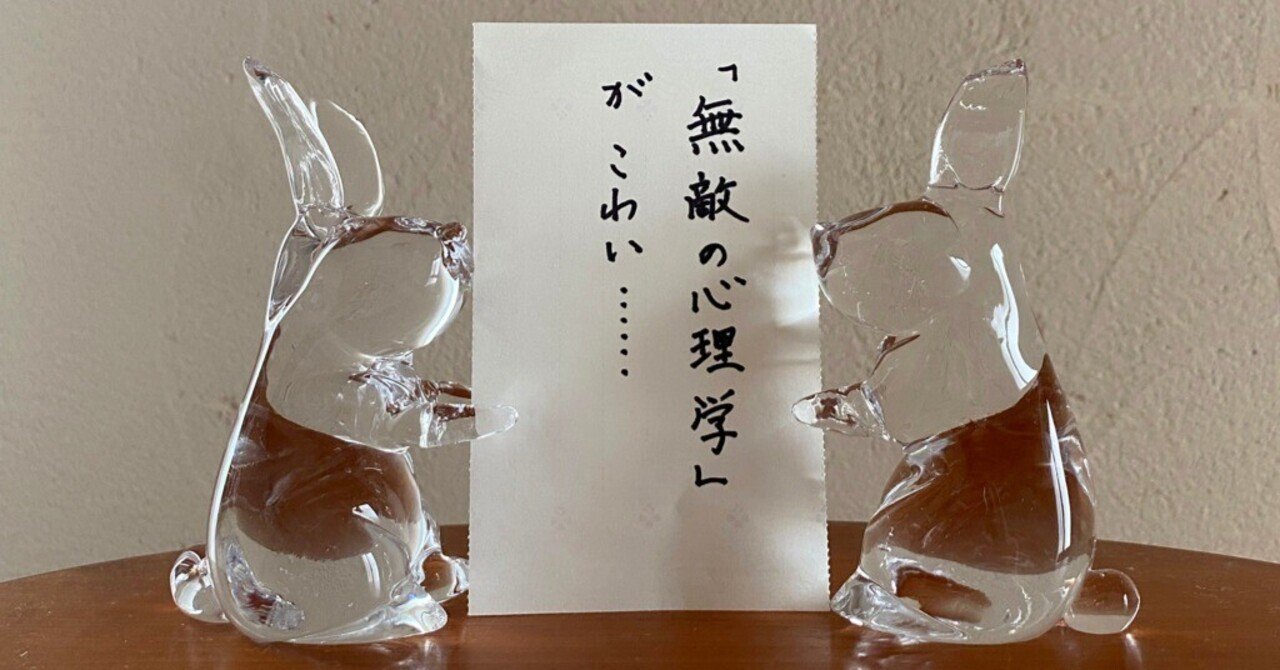 「無敵の心理学」
がこわい……